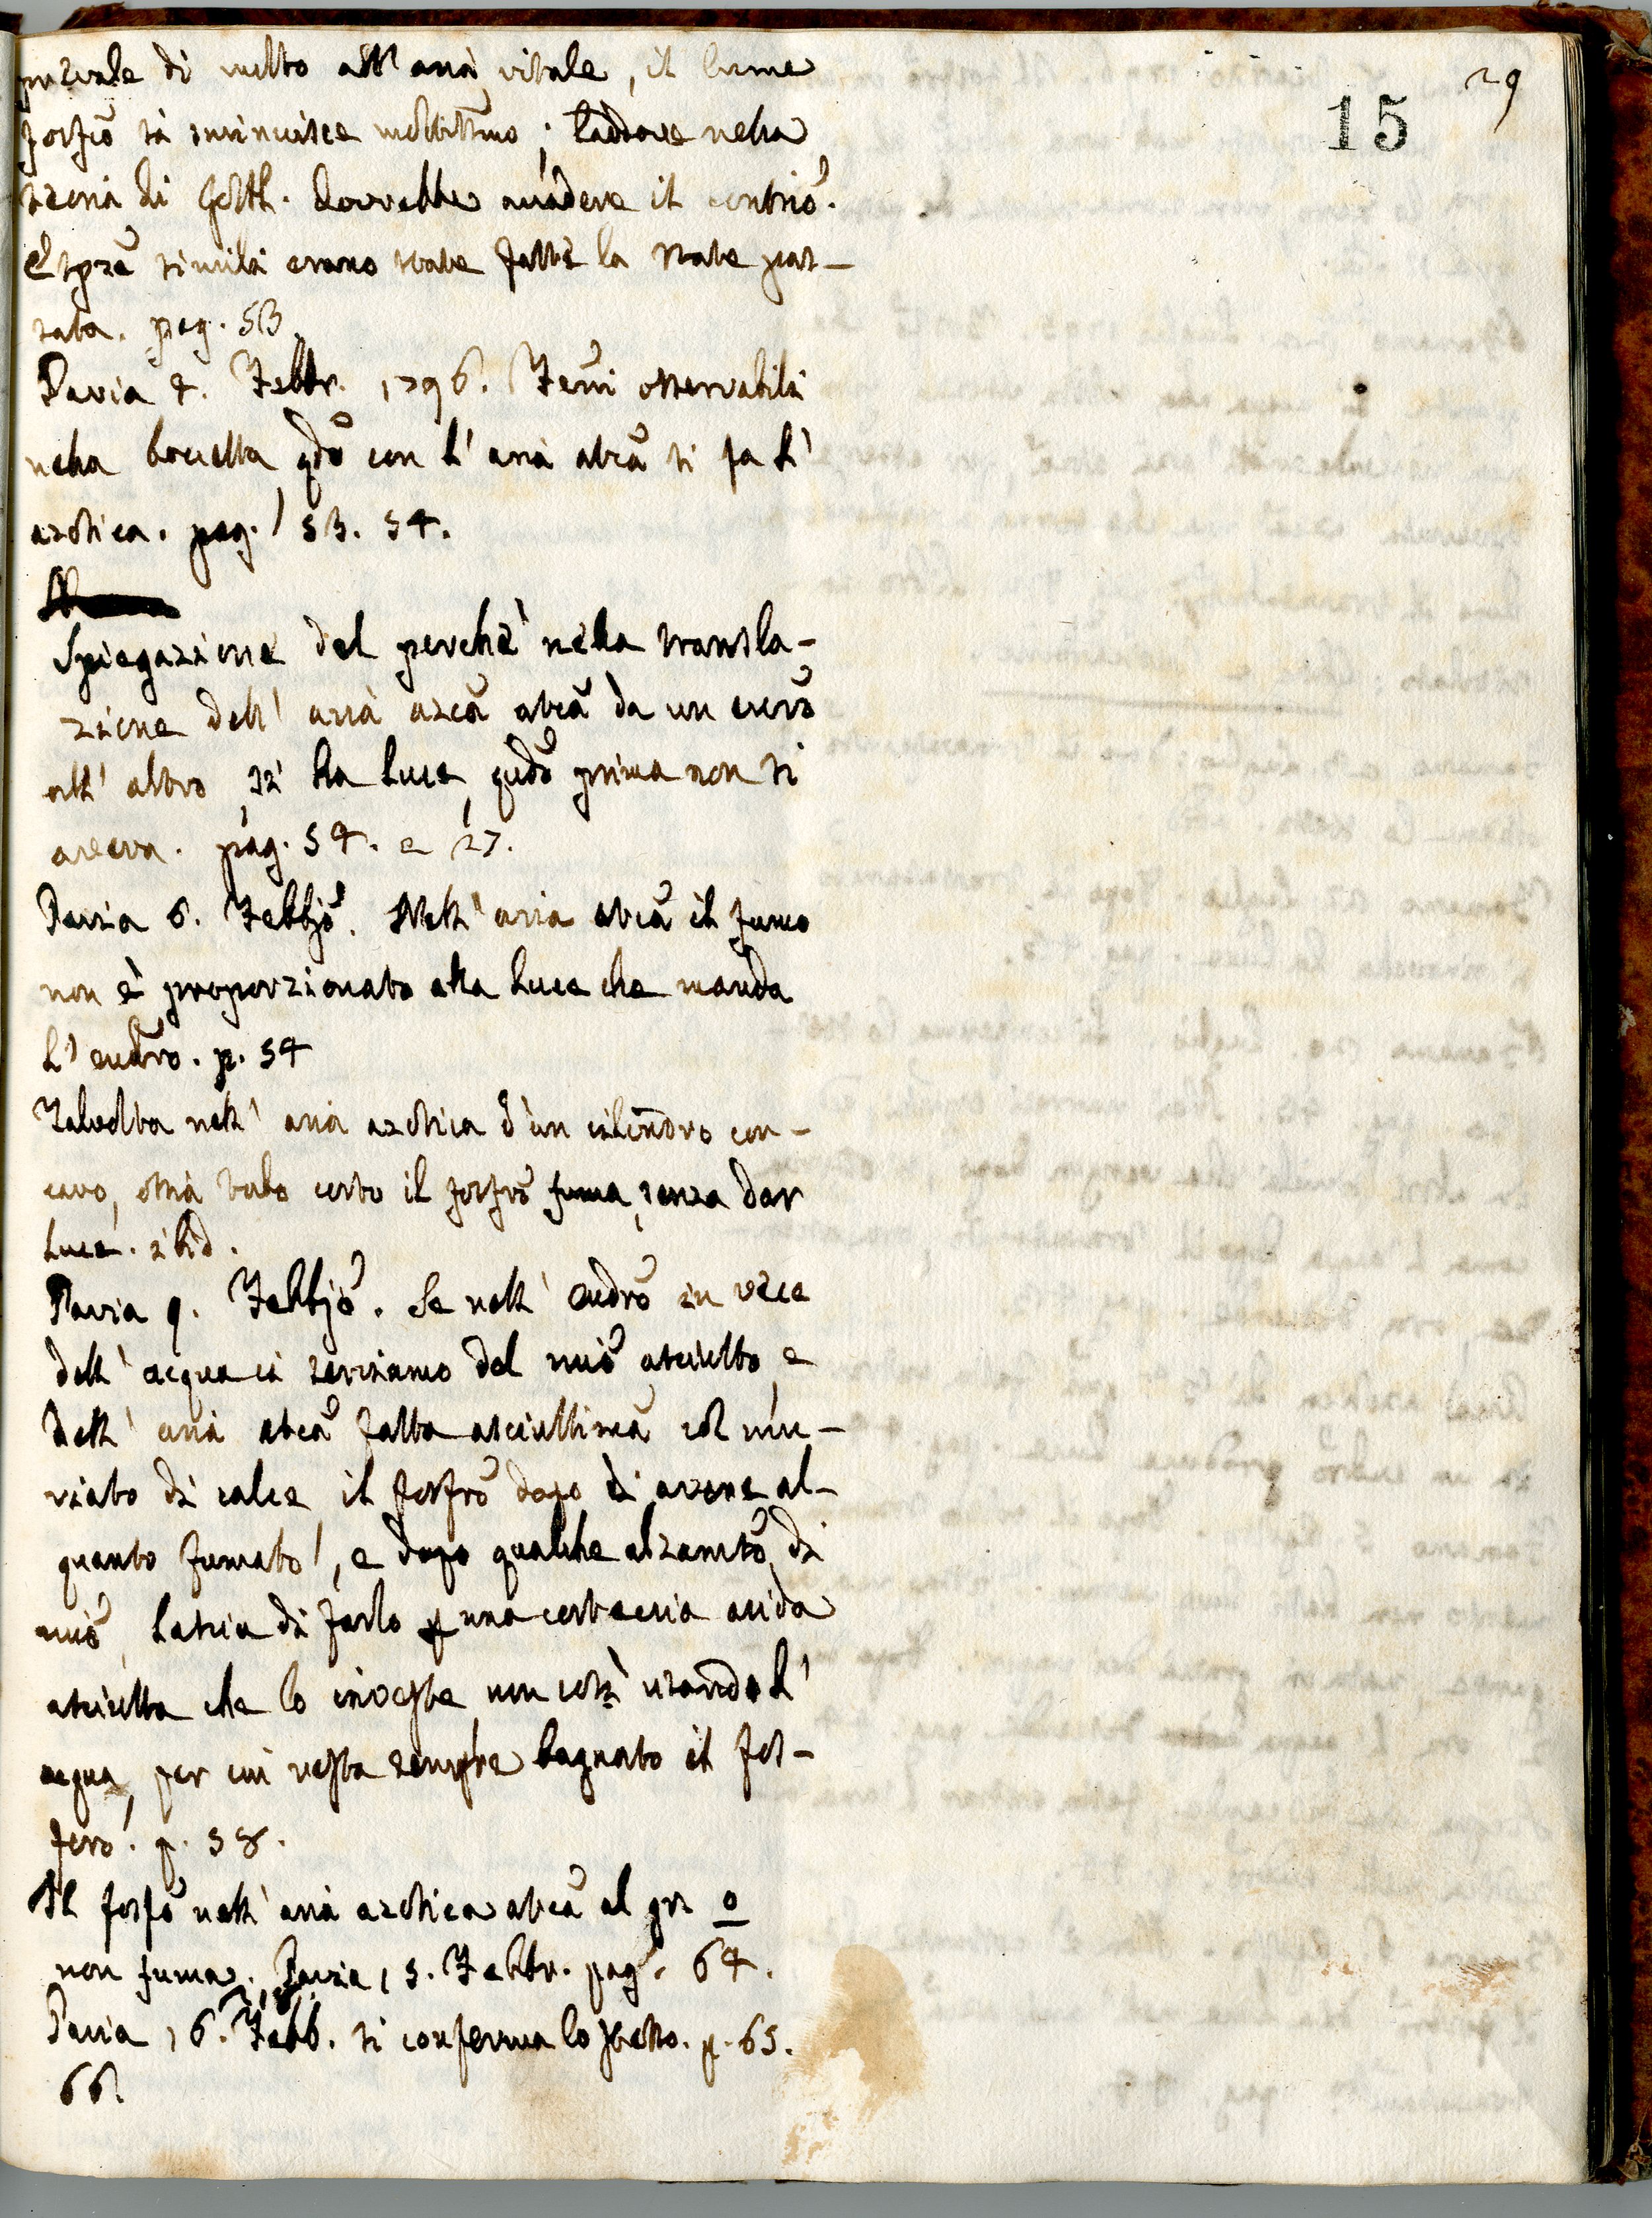 29
15
prevale di molto all' aria vitale, il lume
fosfico si svincisce moltissimo; laddove nella
teoria di Gottl. dovrebbe accadere il contrio.
Espze simili erano state fatte la state pas-
sata. pag. 53.
Pavia 4. Febbr. 1796. Feni osservabili
nella boccetta qdo con l' aria atca si fa l'
azotica. pag. 53. 54.
Spiegazione del perchè nella transla-
zione dell' aria azca atca da un eucro
all' altro si ha luce, qudo prima non si
aveva. pag. 54. e 27.
Pavia 6. Febbjo. Nell' aria atca il fumo
non è proporzionato alla luce che manda
l' eudro. p. 54
Talvolta nell' aria azotica d'un cilindro con-
cavo, ossia tubo corto il fosfro fuma, senza dar
luce. ibid.
Pavia 9. Febbjo. Se nell' eudro in vece
dell' acqua ci serviamo del mrio asciutto, e
dell' aria atca fatta asciuttissima col mu-
riato di calce, il fosfro dopo di avere al-
quanto fumato, e dopo qualche alzamto di
mrio, lascia di farlo p una corteccia acida
asciutta che lo investe, non così usando l'
acqua, per cui resta sempre bagnato il fos-
foro. p. 58.
Il fosfo nell' aria azotica atca al gr. 0
non fuma. Pavia 15. Febbr. pag. 64.
Pavia 16. Febb. si conferma lo stesso. p. 65.
66.